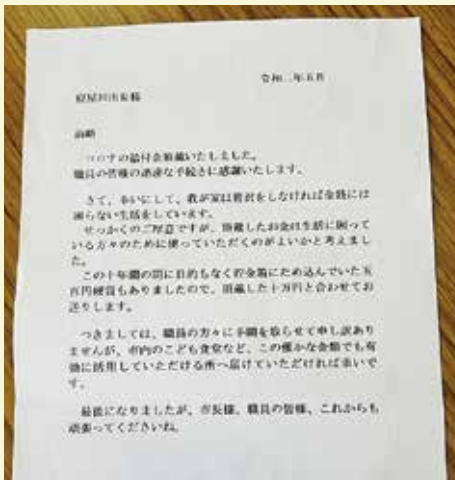 令和二年五月
寝屋川市長様
前略
コロナの給付金頂戴いたしました。
職員の皆様の迅速な手続きに感謝いたします。
さて、幸いにして、我が家は贅沢をしなければ金銭には
困らない生活をしています。
せっかくのご厚意ですが、頂戴したお金は生活に困って
いる方々のために使っていただくのがよいかと考えまし
た。
この十年間の間に目的もなく貯金箱にため込んでいた五
百円硬貨もありましたので、頂戴した十万円と合わせてお
送りします。
つきましては、職員の方々に手間を取らせて申し訳あり
ませんが、市内のこども食堂など、この僅かな金額でも有
効に活用していただける所へ届けていただければ幸いで
す。
最後になりましたが、市長様、職員の皆様、これからも
頑張ってくださいね。